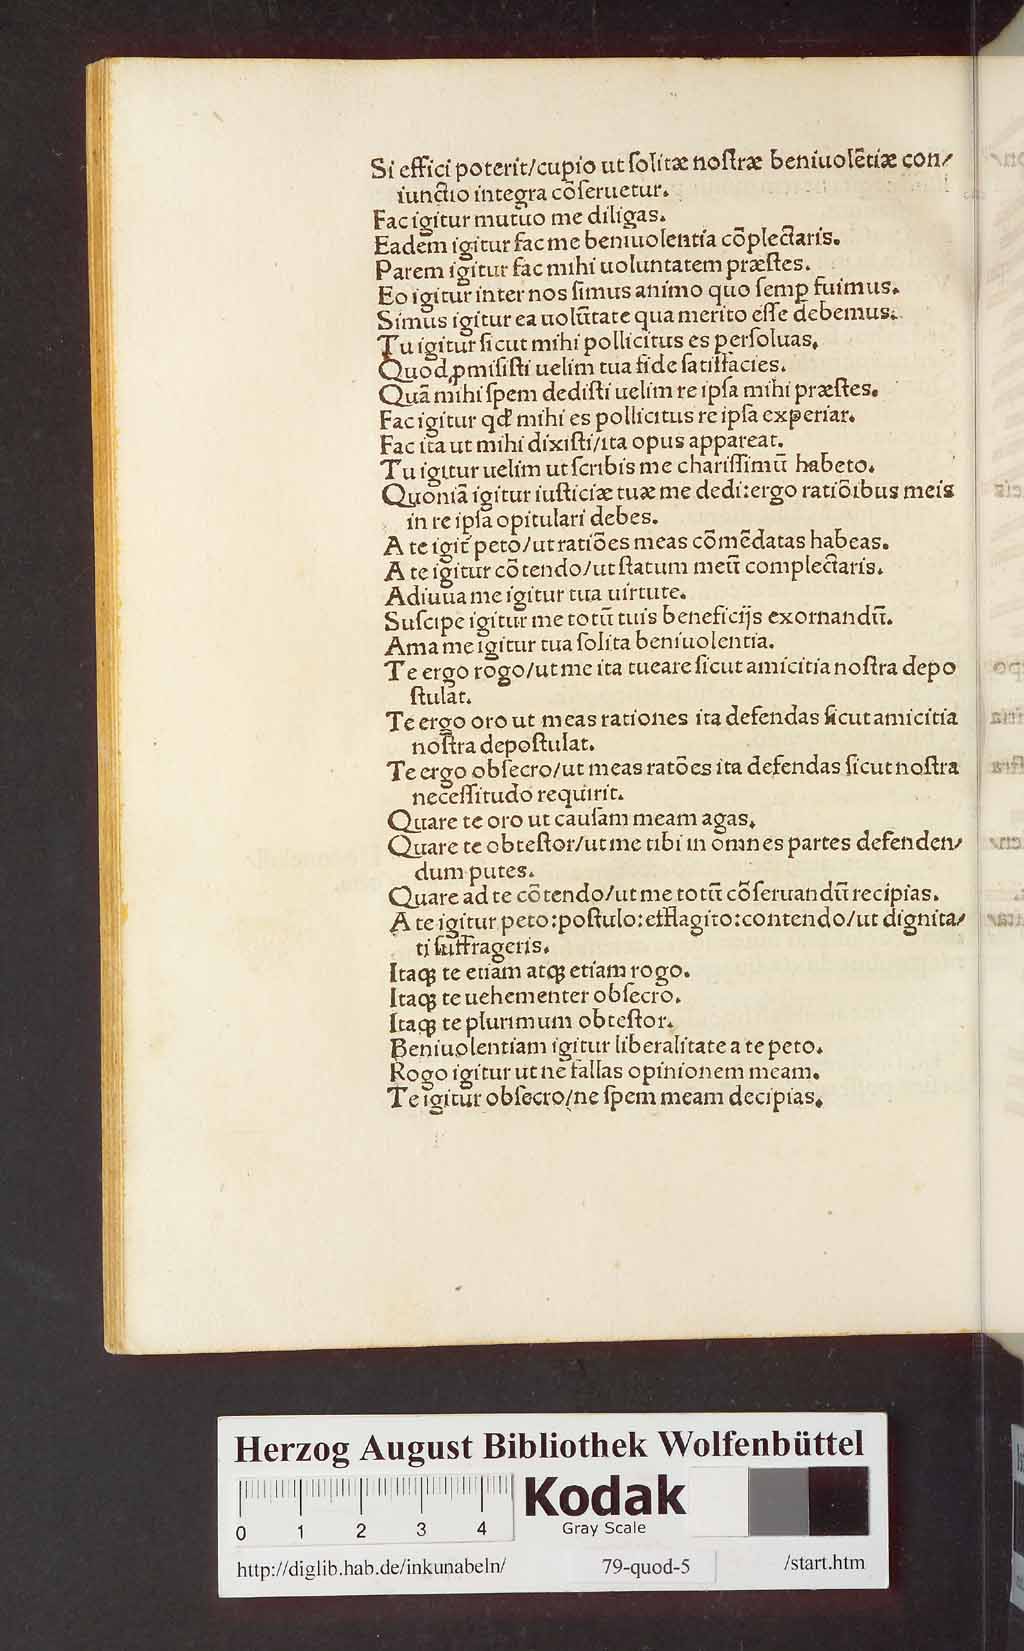 Si effici poterit/cupio ut ſolitæ noſtræ beniuolētiæ con/
iunctio integra cōſeruetur.
Fac igitur mutuo me diligas.
Eadem igitur fac me beniuolentia cōplectaris.
Parem igitur fac mihi uoluntatem præſtes.
Eo igitur inter nos ſimus animo quo ſemꝑ fuimus.
Simus igitur ea uolūtate qua merito eſſe debemus.
Tu igitur ſicut mihi pollicitus es perſoluas.
Quod ꝓmiſiſti uelim tua fide ſatiſfacies.
Quā mihi ſpem dediſti uelim re ipſa mihi præſtes.
Fac igitur qđ mihi es pollicitus re ipſa experiar.
Fac ita ut mihi dixiſti/ita opus appareat.
Tu igitur uelim ut ſcribis me chariſſimū habeto.
Quoniā igitur iuſticiæ tuæ me dedi:ergo ratiōibus meis
in re ipſa opitulari debes.
A te igit᷑ peto/ut ratiōes meas cōmēdatas habeas.
A te igitur cōtendo/ut ſtatum meū complectaris.
Adiuua me igitur tua uirtute.
Suſcipe igitur me totū tuis beneficijs exornandū.
Ama me igitur tua ſolita beniuolentia.
Te ergo rogo/ut me ita tueare ſicut amicitia noſtra depo
ſtulat.
Te ergo oro ut meas rationes ita defendas ſicut amicitia
noſtra depoſtulat.
Te ergo obſecro/ut meas ratōes ita defendas ſicut noſtra
neceſſitudo requirit.
Quare te oro ut cauſam meam agas.
Quare te obteſtor/ut me tibi in omnes partes defenden/
dum putes.
Quare ad te cōtendo/ut me totū cōſeruandū recipias.
A te igitur peto:poſtulo:efflagito:contendo/ut dignita/
ti ſuffrageris.
Itaqꝫ te etiam atqꝫ etiam rogo.
Itaqꝫ te uehementer obſecro.
Itaqꝫ te plurimum obteſtor.
Beniuolentiam igitur liberalitate a te peto.
Rogo igitur ut ne fallas opinionem meam.
Te igitur obſecro/ne ſpem meam decipias.
Herzog August Bibliothek Wolfenbüttel
0 1 2 3 4
Kodak
Gray Scale
http://diglib.hab.de/inkunabeln/ 79-quod-5 /start.htm